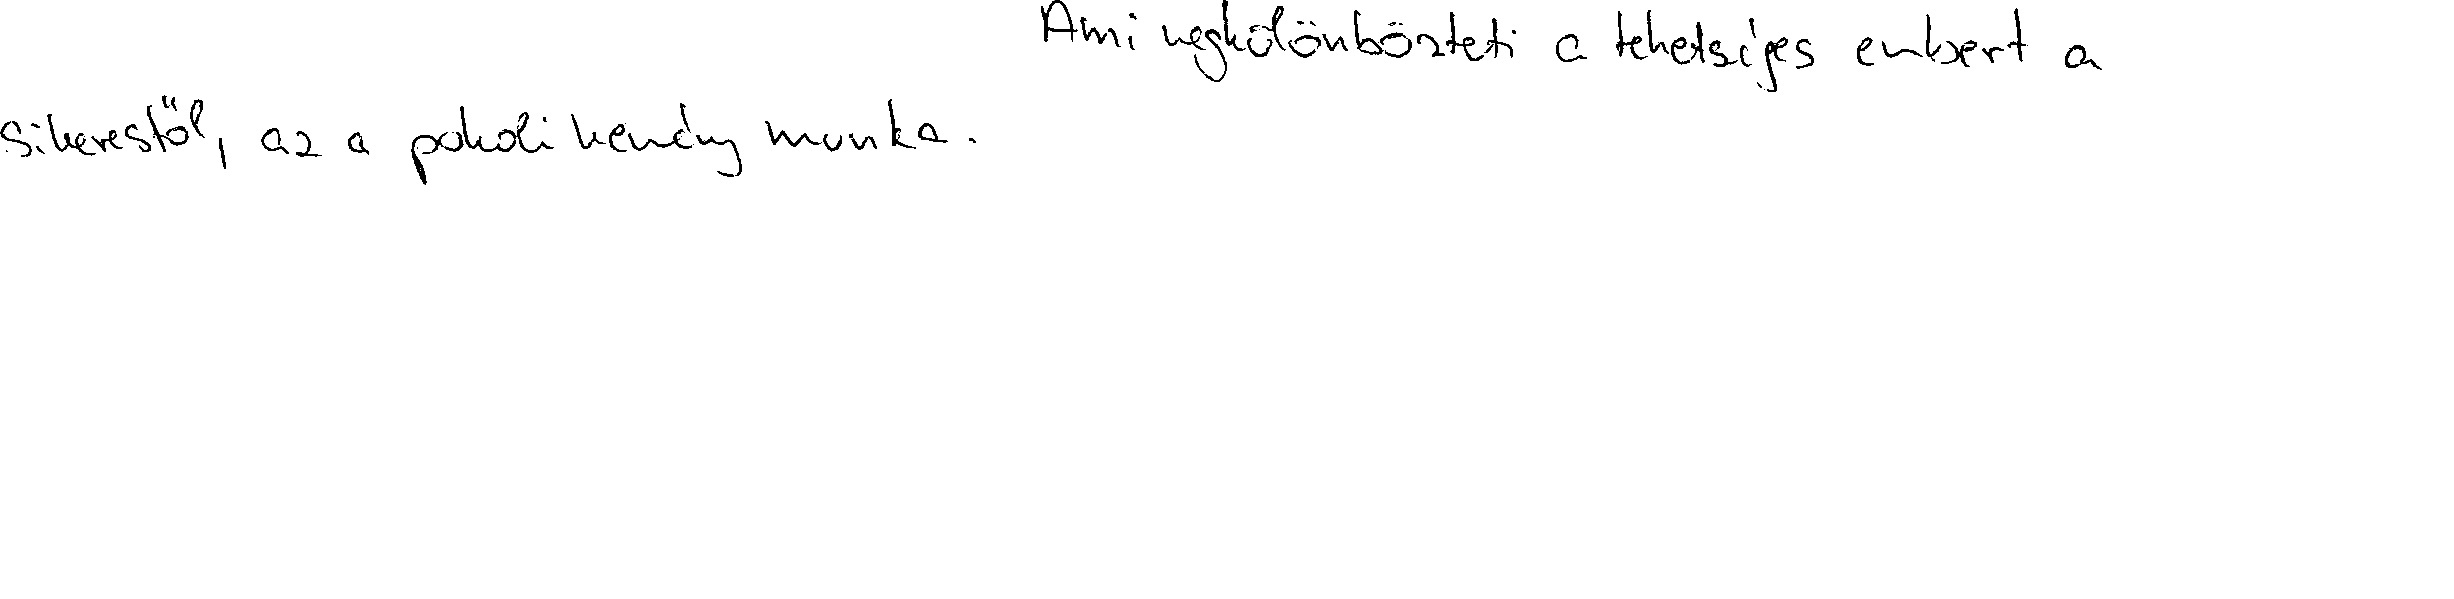 Ami megkülönbözteti a tehetséges embert a
sikerestől, az a pokoli kemény munka.